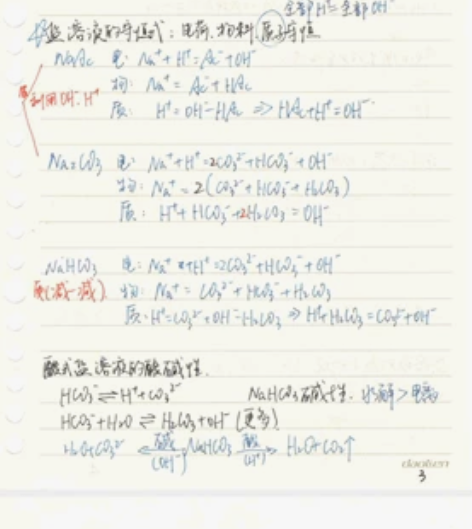 全部H⁺=全部OH⁻
盐溶液的守恒式：电荷、物料、质子守恒
NaAc 电：Na⁺+H⁺=Ac⁻+OH⁻
利用OH⁻、H⁺ 物：Na⁺=Ac⁻+HAc
质：H⁺=OH⁻-HAc ⇒ HAc+H⁺=OH⁻
Na₂CO₃ 电：Na⁺+H⁺=2CO₃²⁻+HCO₃⁻+OH⁻
物：Na⁺=2(CO₃²⁻+HCO₃⁻+H₂CO₃)
质：H⁺+HCO₃⁻+2H₂CO₃=OH⁻
NaHCO₃ 电：Na⁺+H⁺=2CO₃²⁻+HCO₃⁻+OH⁻
质(减一减) 物：Na⁺=CO₃²⁻+HCO₃⁻+H₂CO₃
质：H⁺=CO₃²⁻+OH⁻-H₂CO₃ ⇒ H⁺+H₂CO₃=CO₃²⁻+OH⁻
酸式盐溶液的酸碱性.
HCO₃⁻⇌H⁺+CO₃²⁻ NaHCO₃碱性. 水解>电离
HCO₃⁻+H₂O⇌H₂CO₃+OH⁻(更多)
H₂O+CO₃²⁻ ←碱(OH⁻) NaHCO₃ 酸(H⁺)→ H₂O+CO₂↑
3